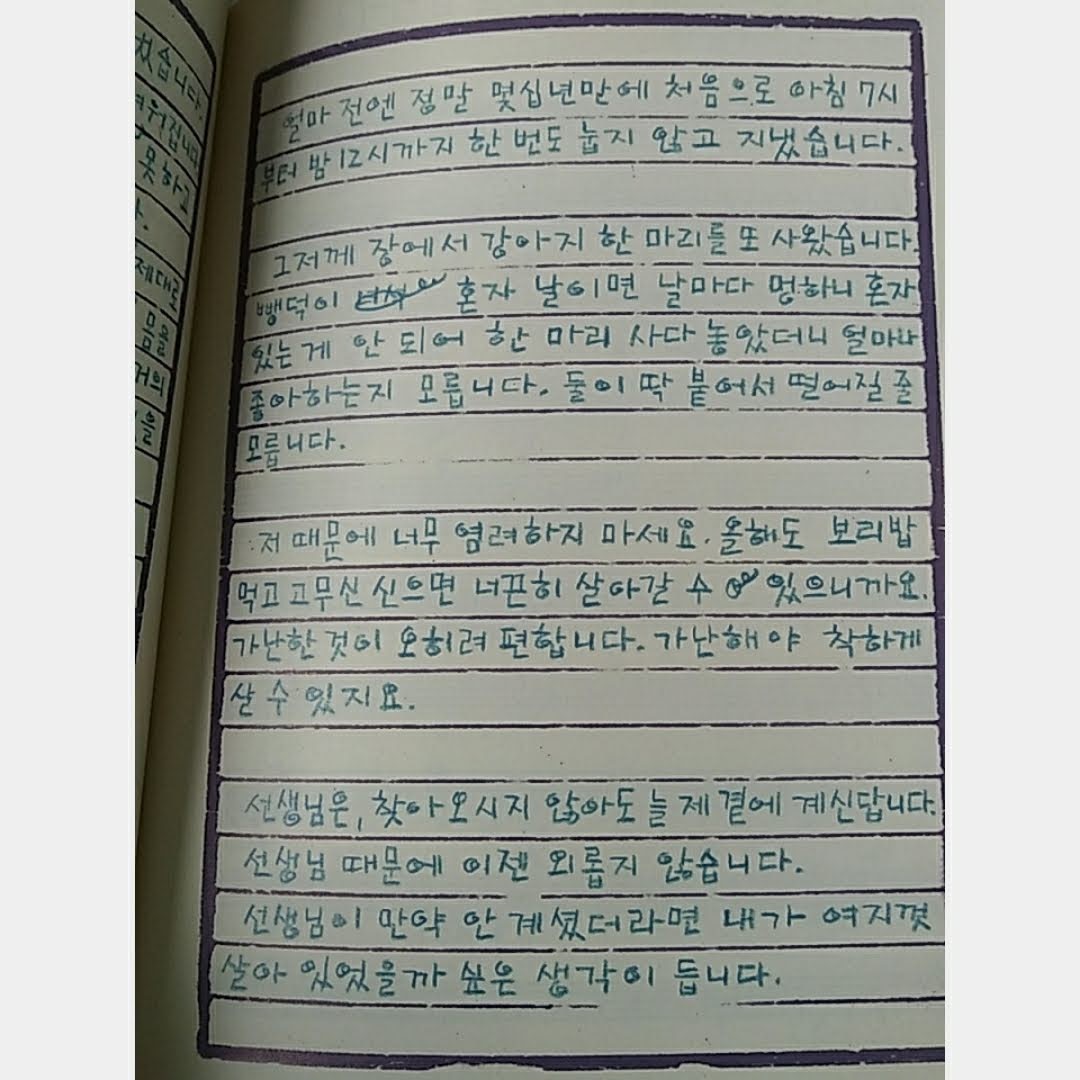 쳤습니다.
워집니다
못하고
제대로
몸을
거의
을
얼마 전엔 정말 몇십년만에 처음으로 아침 7시
부터 밤 12시까지 한 번도 눕지 않고 지냈습니다.
그저께 장에서 강아지 한 마리를 또 사왔습니다.
뺑덕이 혼자 날이면 날마다 멍하니 혼자
있는 게 안 되어 한 마리 사다 놓았더니 얼마나
좋아하는지 모릅니다. 둘이 딱 붙어서 떨어질 줄
모릅니다.
저 때문에 너무 염려하지 마세요. 올해도 보리밥
먹고 고무신 신으면 너끈히 살아갈 수 있으니까요.
가난한 것이 오히려 편합니다. 가난해야 착하게
살 수 있지요.
선생님은, 찾아오시지 않아도 늘 제 곁에 계신답니다.
선생님 때문에 이젠 외롭지 않습니다.
선생님이 만약 안 계셨더라면 내가 여지껏
살아 있었을까 싶은 생각이 듭니다.